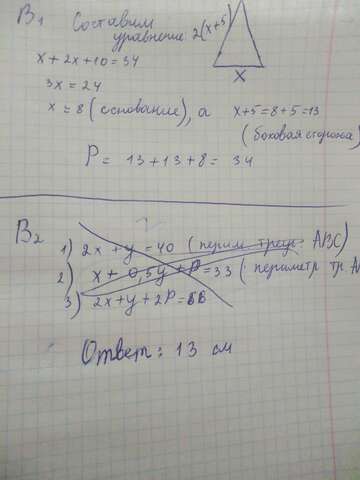 B1 Составим
уравнение: 2(x+5)
x
x+2x+10=34
3x=24
x=8 (основание), а x+5=8+5=13
(боковая сторона)
P= 13+13+8= 34
B2
1) 2x+y=40 (перим. треуг. ABC)
2) x+0,5y+P=33 (периметр тр. A
3) 2x+y+2P=66
Ответ: 13 см